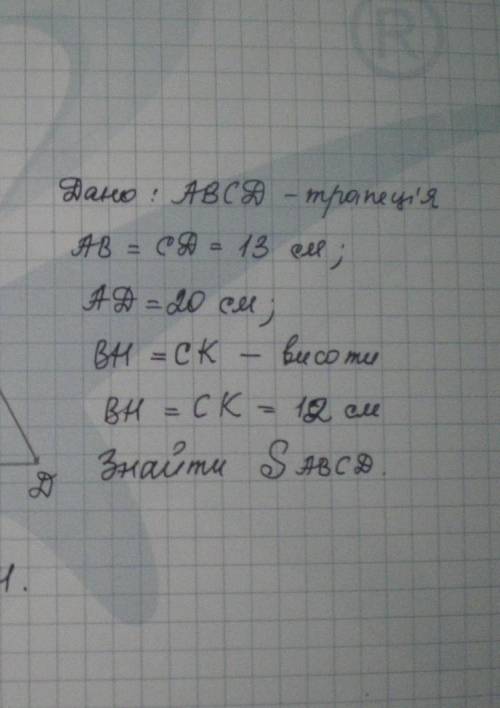 Дано: ABCD - трапеція
AB = CD = 13 см;
AD = 20 см;
BH = CK - висоти
BH = CK = 12 см
Знайти S ABCD.
D
®